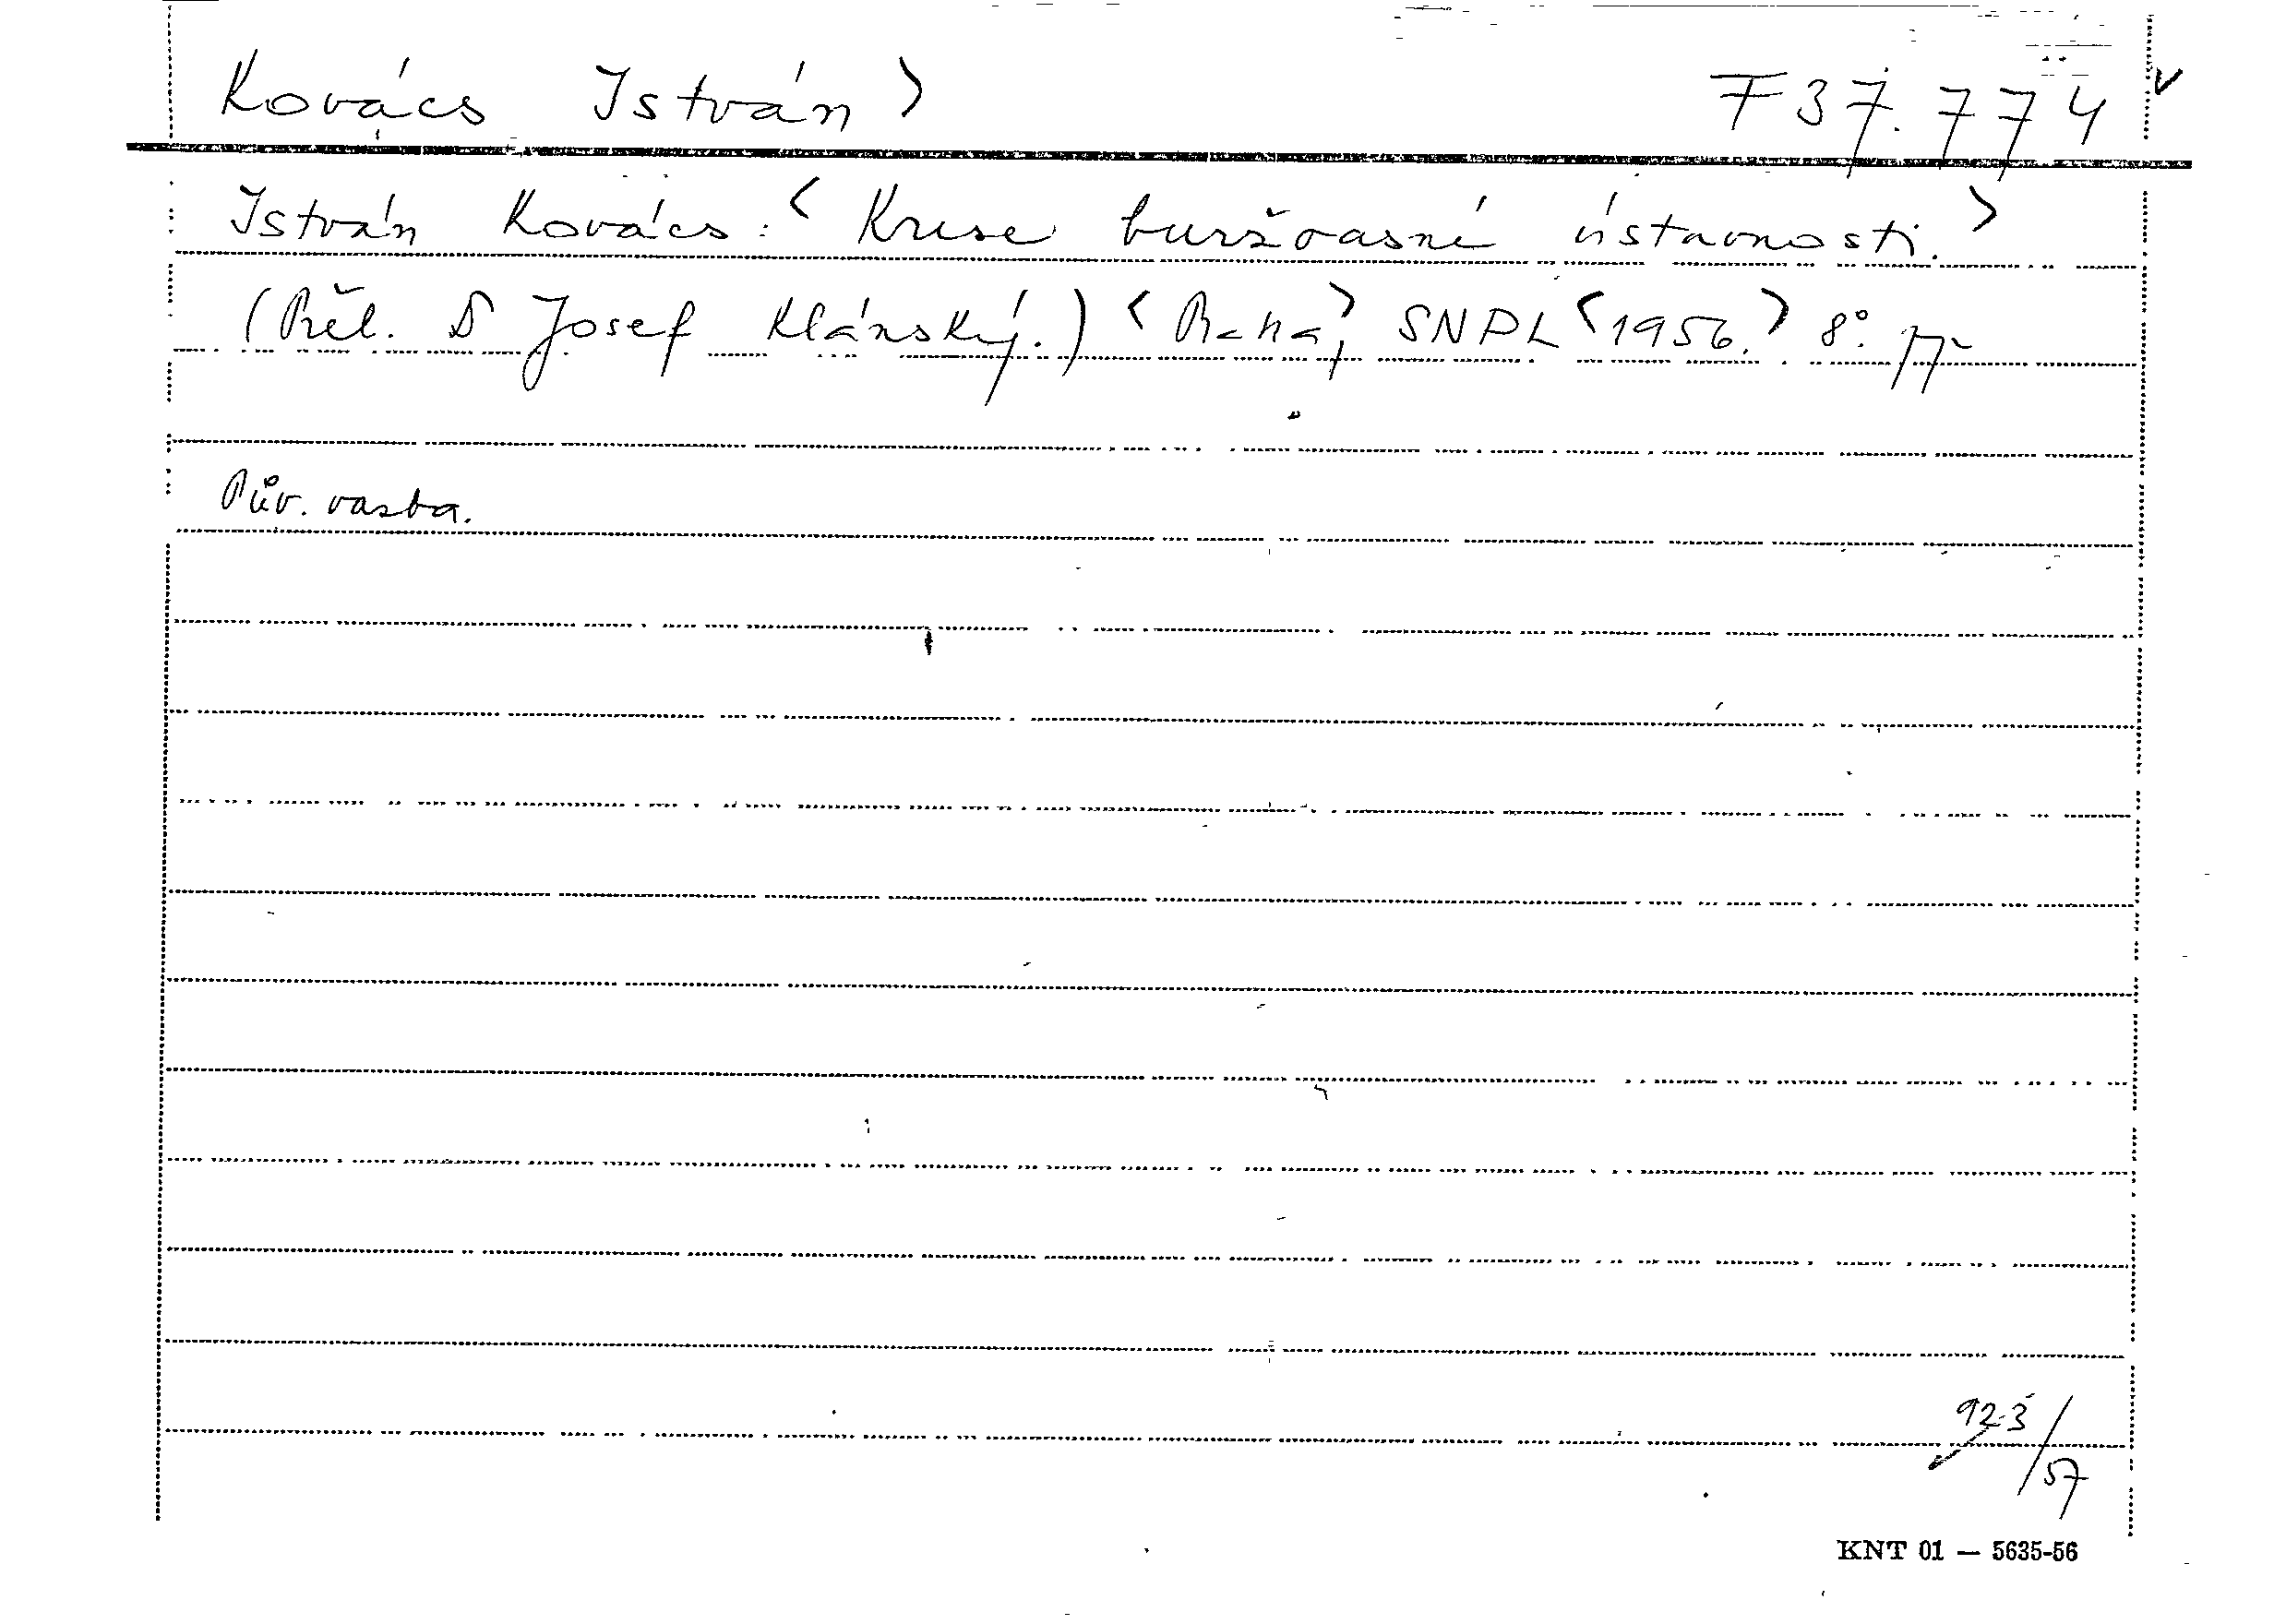 Kovács István > F 37.774 v
István Kovács: < Krise buržoasní ústavnosti. >
(Přel. D Josef Klánský.) < Praha, > SNPL < 1956. > 8°.
Pův. vazba.
923/57
KNT 01 — 5635-56